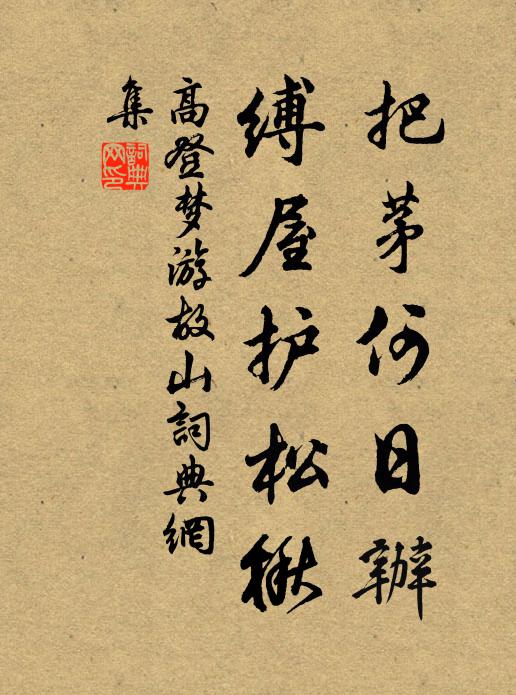 把茅何日辦
縛屋护松楸
高登梦游故山詞典網
集
詞典
网印